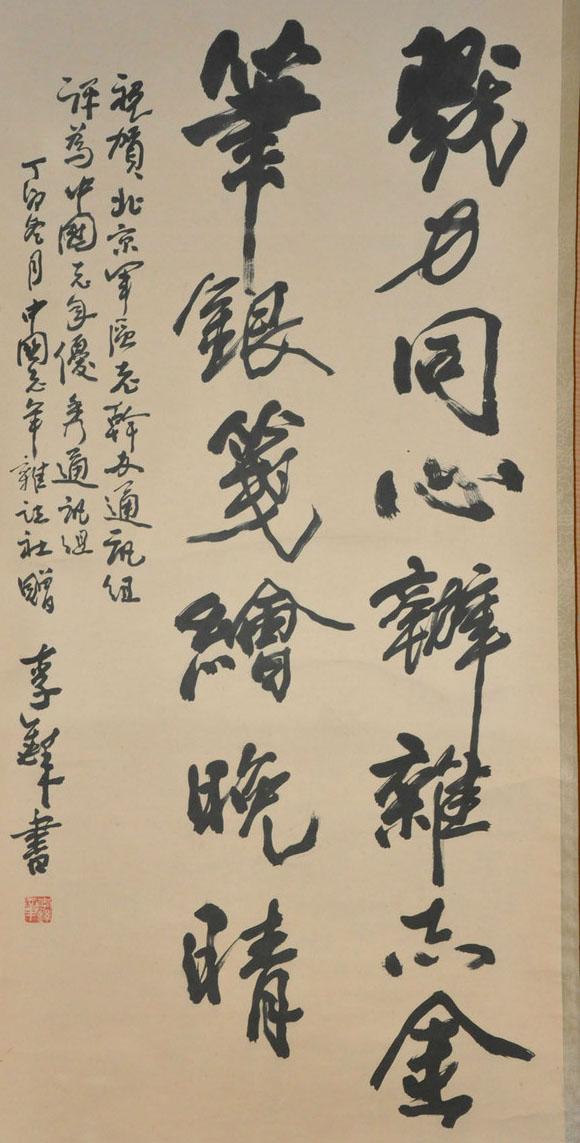 戮力同心辦雜志金
筆銀箋繪晚晴
祝賀北京軍區老幹部通訊組
評為中國老年優秀通訊組
丁卯冬月中國老年雜誌社贈 李鐸書